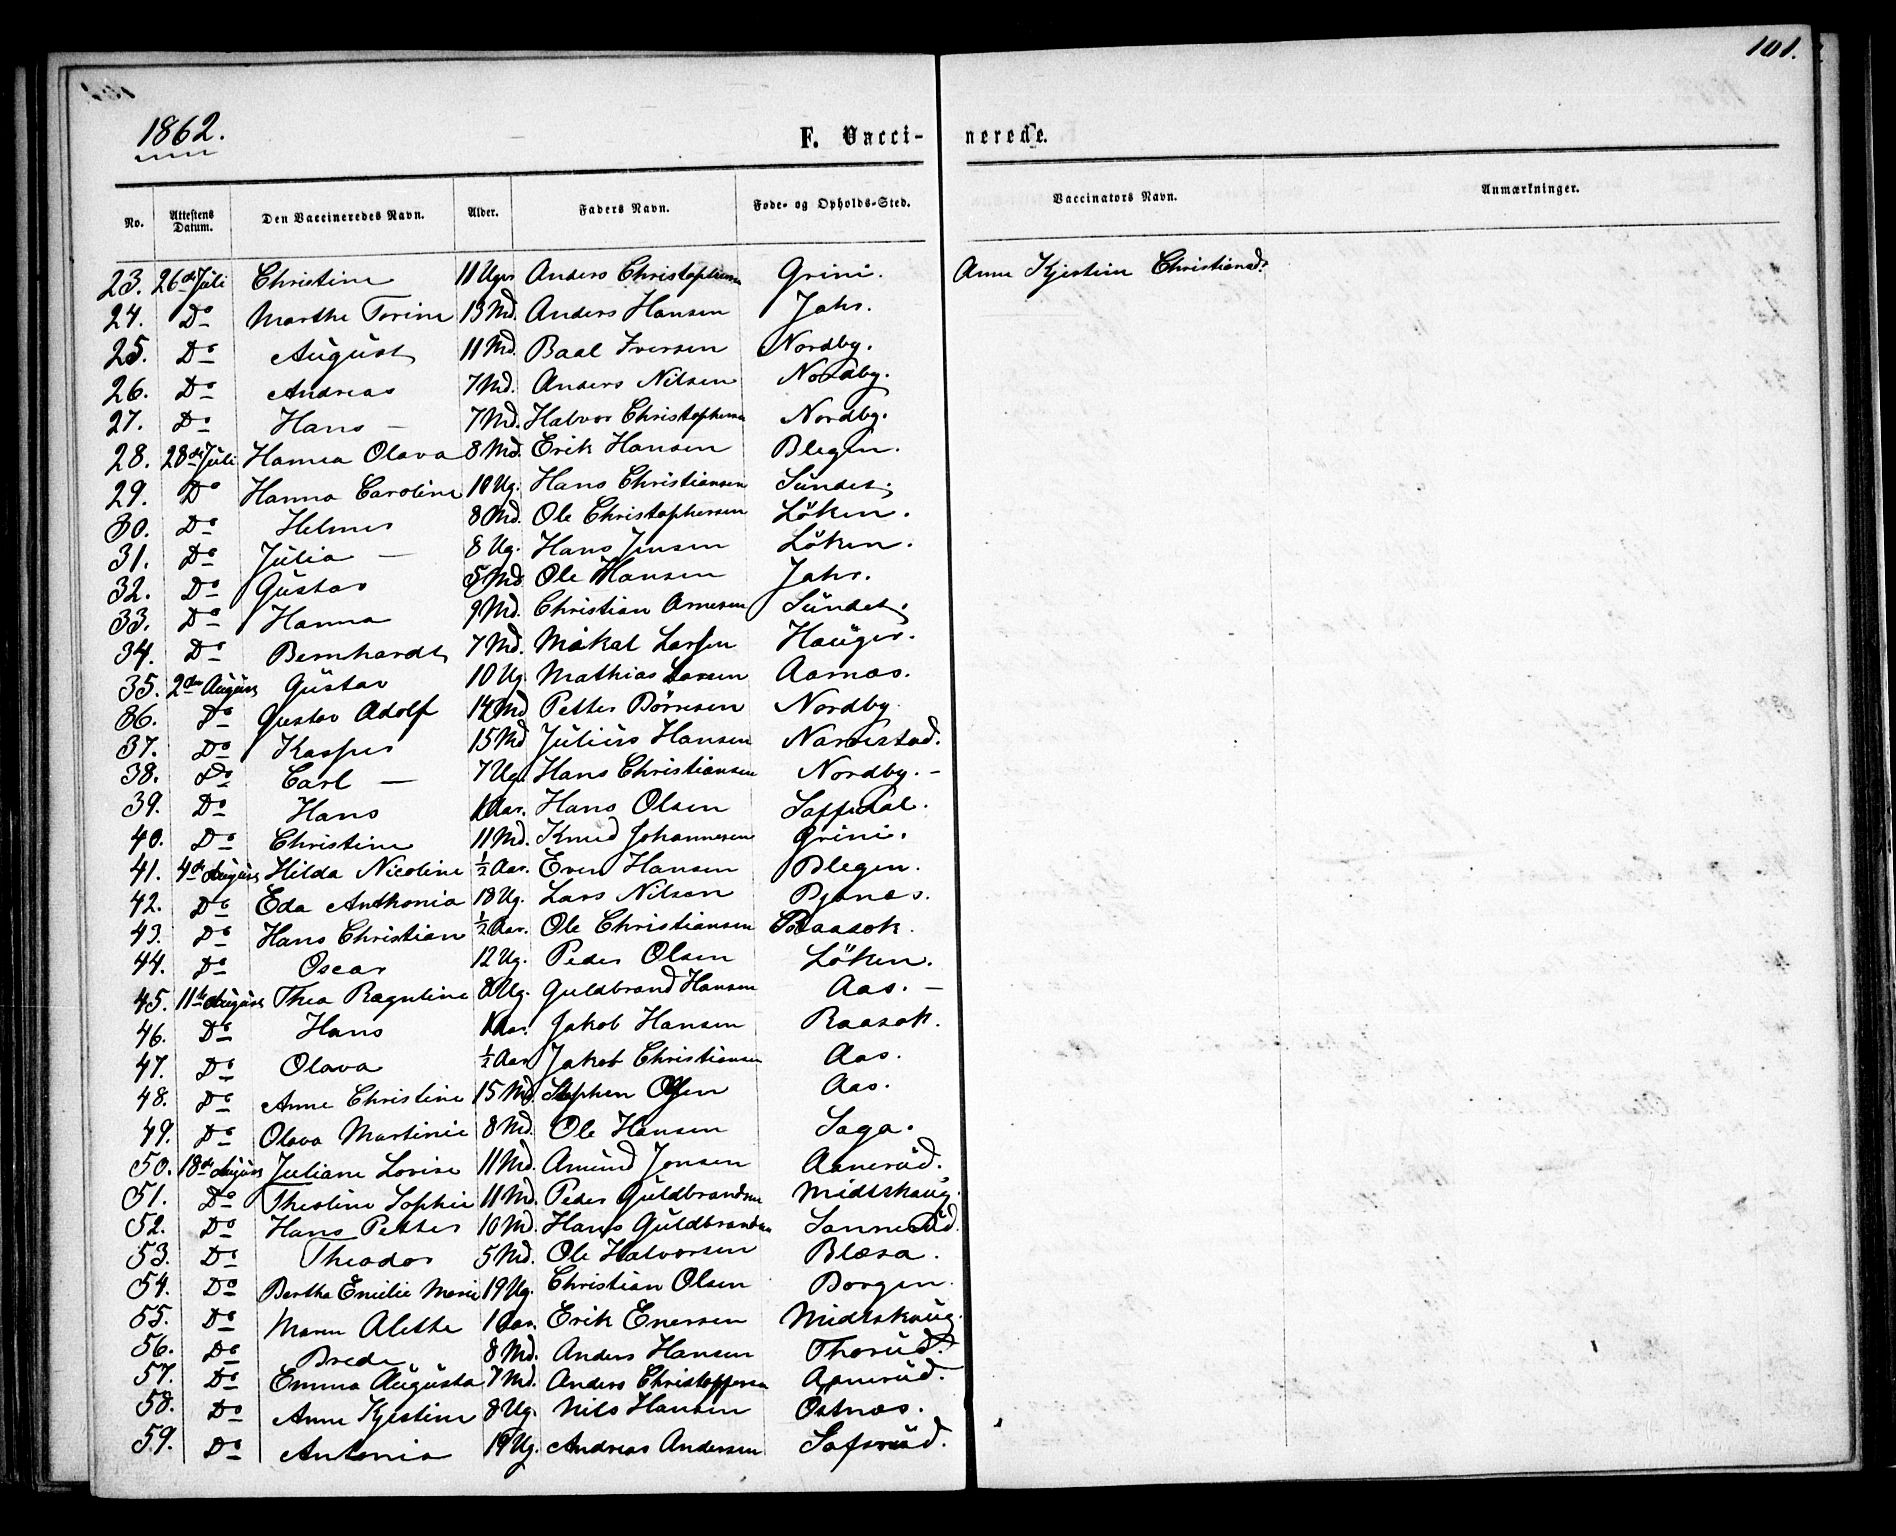 101.
1862.
F. Vaccinerede.
No. Attestens Datum. Den Vaccineredes Navn. Alder. Faders Navn. Føde- og Opholds-Sted. Vaccinators Navn. Anmærkninger.
23. 26de Juli Christine 11 Uger Anders Christophersen Grini. Anne Kjerstine Christiansd:
24. Do Marthe Torine 13 Md. Anders Hansen Jahr.
25. Do August 11 Md. Baal Iversen Nordby.
26. Do Andreas 7 Md. Anders Nilsen Nordby.
27. Do Hans – 7 Md. Halvor Christophersen Nordby.
28. 28de Juli Hanna Olava 8 Md. Erik Hansen Blegen.
29. Do Hanna Caroline 10 Ug. Hans Christiansen Sundet.
30. Do Helmer 8 Md. Ole Christophersen Löken.
31. Do Julia – 8 Ug. Hans Jensen Löken.
32. Do Gustav 5 Md. Ole Hansen Jahr.
33. Do Hanna 9 Md. Christian Arnesen Sundet.
34. Do Bernhardt 7 Md. Mikal Larsen Hauger.
35. 2den August Gustav 10 Ug. Mathias Larsen Aarnæs.
36. Do Gustav Adolf 14 Md Petter Børresen Nordby.
37. Do Kasper 15 Md Julius Hansen Narvestad.
38. Do Carl – 7 Ug. Hans Christiansen Nordby. –
39. Do Hans 1 Aar. Hans Olsen
40. Do Christine 11 Md. Knud Johannesen Grini.
41. 4de August Hilda Nicoline ½ Aar. Even Hansen Blegen.
42. Do Eda Anthonia 18 Ug. Lars Nilsen
43. Do Hans Christian ½ Aar. Ole Christiansen Raasok.
44. Do Oscar 12 Ug. Peder Olsen Löken.
45. 11te August Thea Ragnline 8 Ug. Guldbrand Hansen Aas. –
46. Do Hans 1 Aar. Jakob Hansen Raasok.
47. Do Olava ½ Aar Jakob Christiansen Aas.
48. Do Anne Christine 15 Md. Stephen Olsen Aas.
49. Do Olava Martinie 8 Md. Ole Hansen Saga.
50. 18de August Juliane Lovise 11 Md. Amund Jonsen Aanerud.
51. Do Thestine Sophie 11 Md. Peder Guldbrandsen Midtskaug.
52. Do Hans Petter 10 Md. Hans Guldbrandsen Sannerud.
53. Do Theodor 5 Md. Ole Halvorsen Blæsa.
54. Do Berthe Emilie Marie 19 Ug. Christian Olsen Borgen.
55. Do Maren Alette 1 Aar. Erik Enersen Midtskaug.
56. Do Brede 8 Md. Anders Hansen Thorud.
57. Do Emma Augusta 7 Md. Anders Christoffersen Aanerud.
58. Do Anne Kjestine 8 Ug. Nils Hansen Ostnæs.
59. Do Antonia 19 Ug. Andreas Andersen Sofsrud.